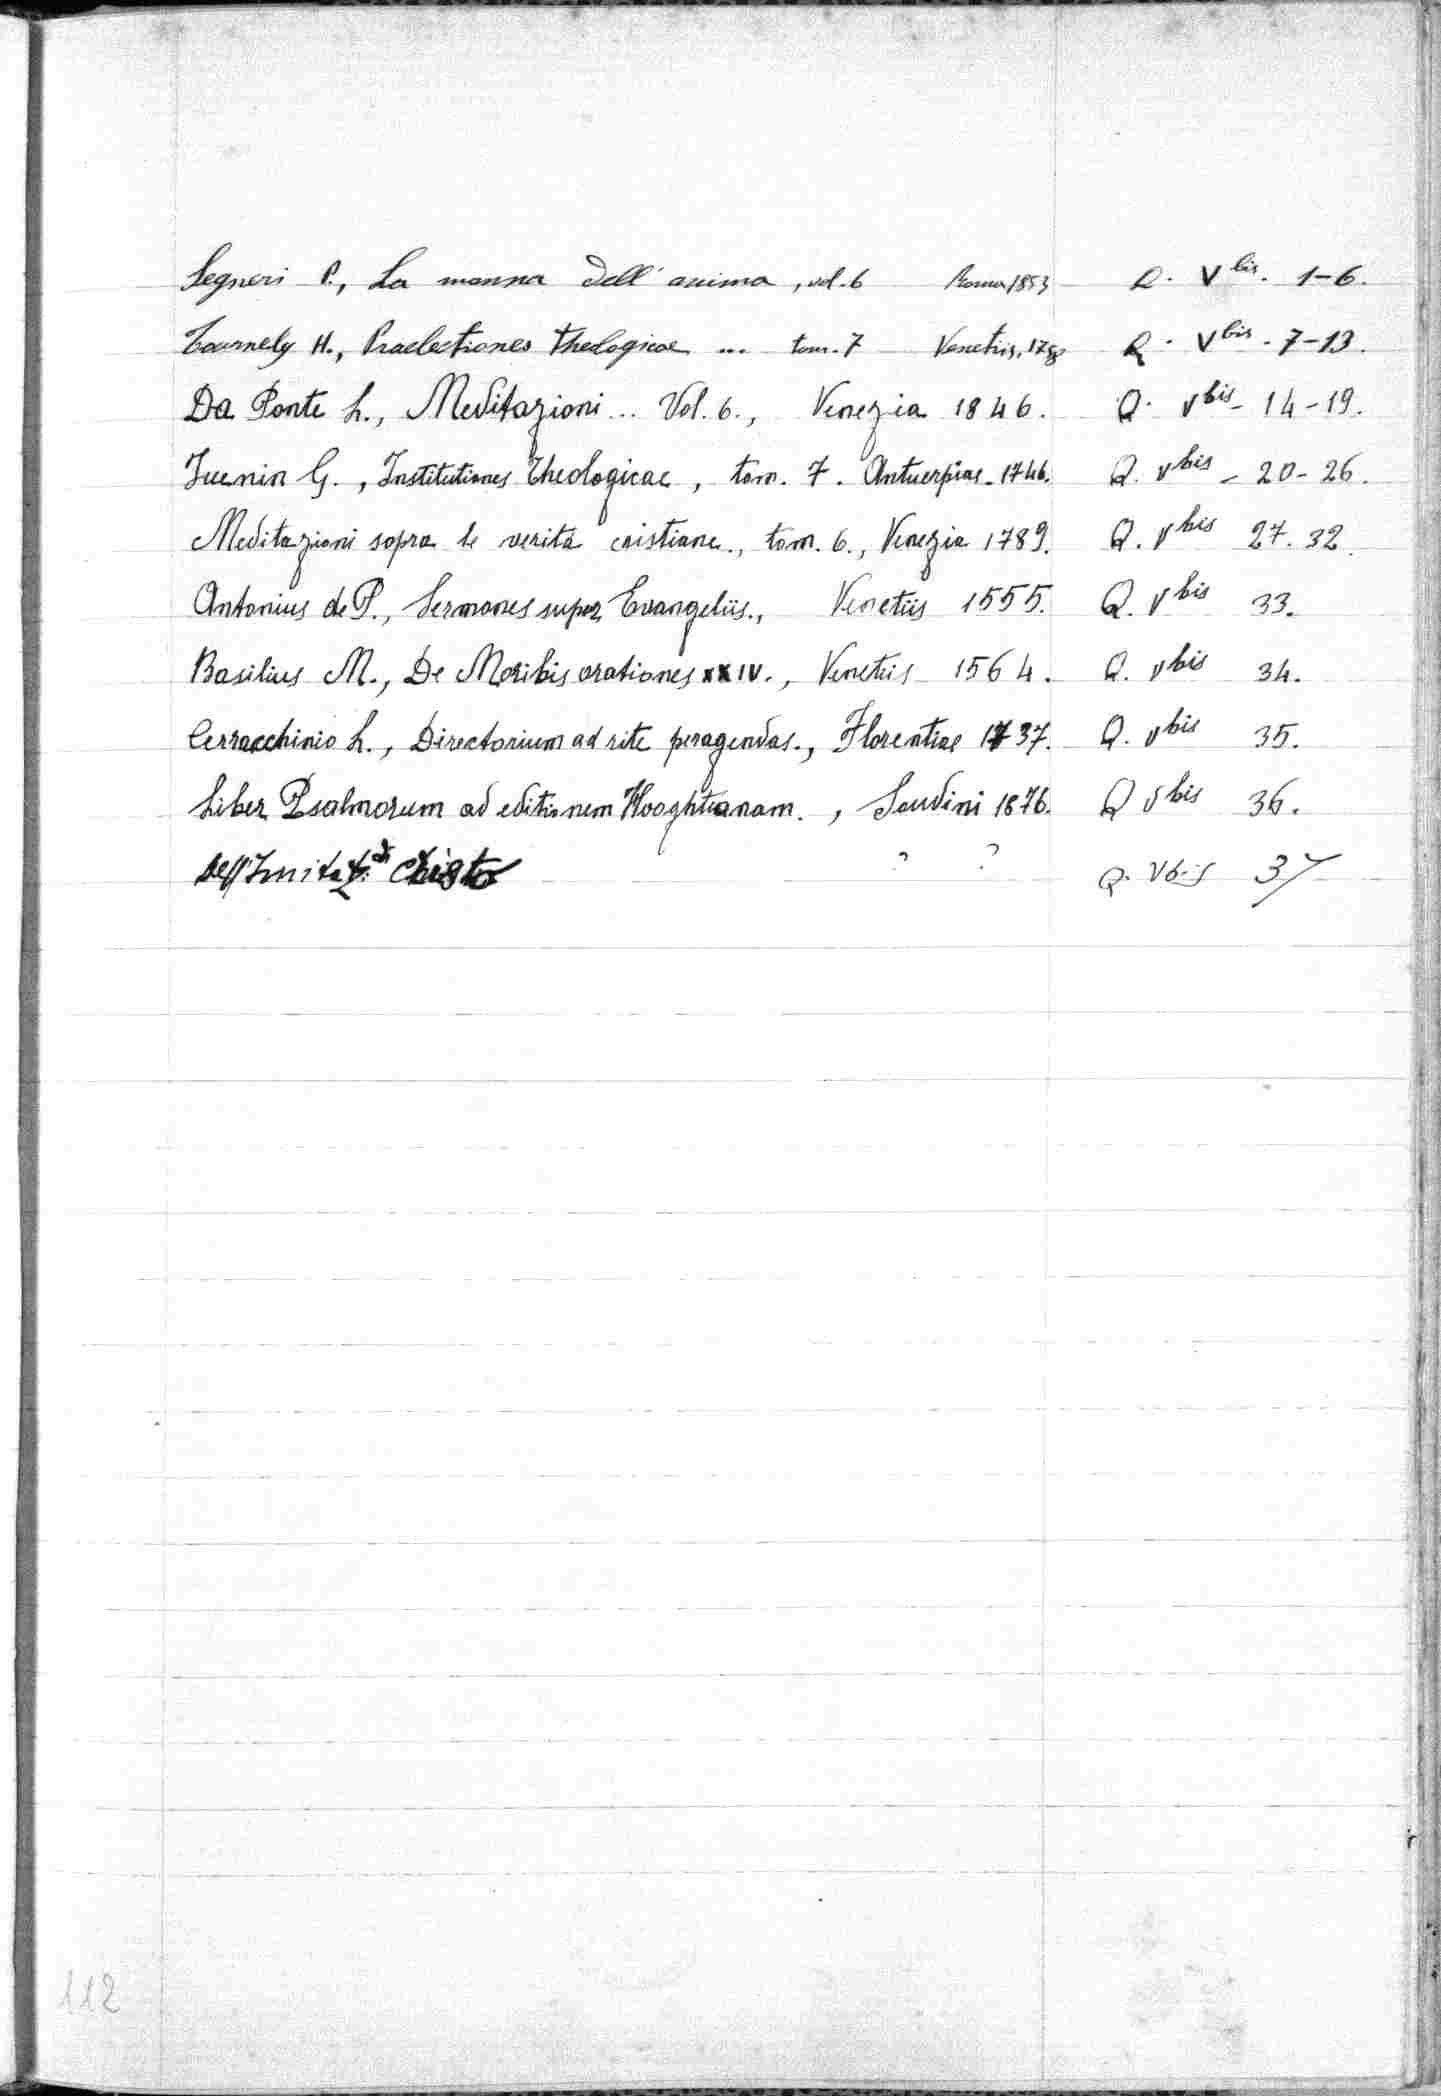 Segneri P., La manna dell'anima, vol. 6 Roma 1853 Q. V bis. 1-6.
Tournely H., Praelectiones theologicae ... tom. 7 Venetiis, Q. V bis. 7-13.
Da Ponte L., Meditazioni... Vol. 6., Venezia 1846. Q. V bis - 14-19.
Juenin G., Institutiones Theologicae, tom. 7. Antuerpiae - 1746. Q. V bis - 20-26.
Meditazioni sopra le verità cristiane., tom. 6., Venezia 1789. Q. V bis 27. 32.
Antonius de P., Sermones super Evangeliis., Venetiis 1555. Q. V bis 33.
Basilius M., De Moribis orationes XXIV., Venetiis 1564. Q. V bis 34.
Cerracchinio L., Directorium ad rite peragendas., Florentiae 1737. Q. V bis 35.
Liber Psalmorum ad editionem Hooghtianam., 1876. Q V bis 36.
Dell'Imitaz. di Christo ? ? Q. V bis 37
112